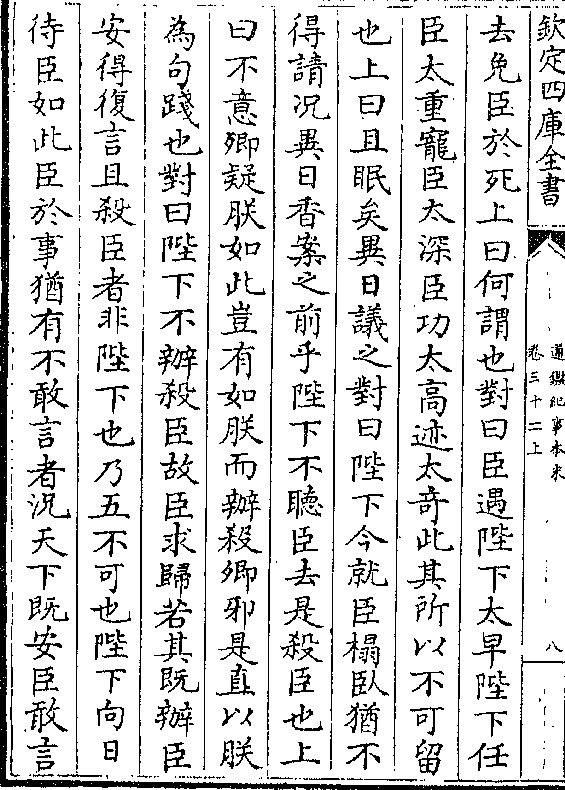 欽定四庫全書
通鑑紀事本末
卷三十二上
八
去免臣於死上曰何謂也對曰臣遇陛下太早陛下任
臣太重寵臣太深臣功太高迹太奇此其所以不可留
也上曰且眠矣異日議之對曰陛下今就臣榻臥猶不
得請况異日香案之前乎陛下不聽臣去是殺臣也上
曰不意卿疑朕如此豈有如朕而辦殺卿邪是直以朕
為句踐也對曰陛下不辦殺臣故臣求歸若其既辦臣
安得復言且殺臣者非陛下也乃五不可也陛下向日
待臣如此臣於事猶有不敢言者况天下既安臣敢言